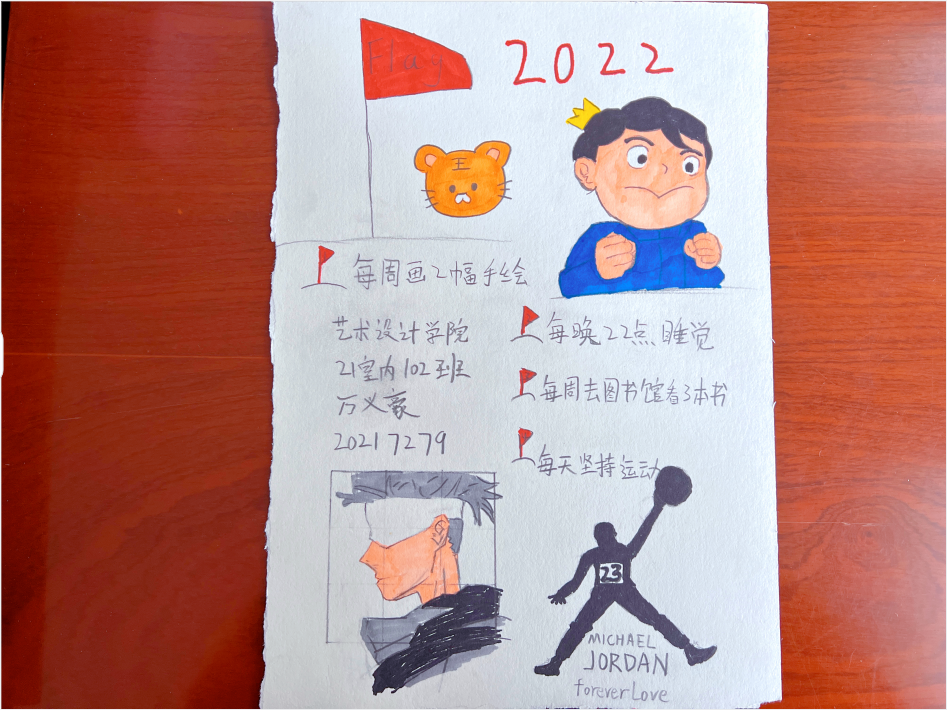 Flag
2022
王
每周画2幅手绘
艺术设计学院
21室内102班
万义豪
20217279
每晚22点睡觉
每周去图书馆看3本书
每天坚持运动
23
MICHAEL
JORDAN
forever Love